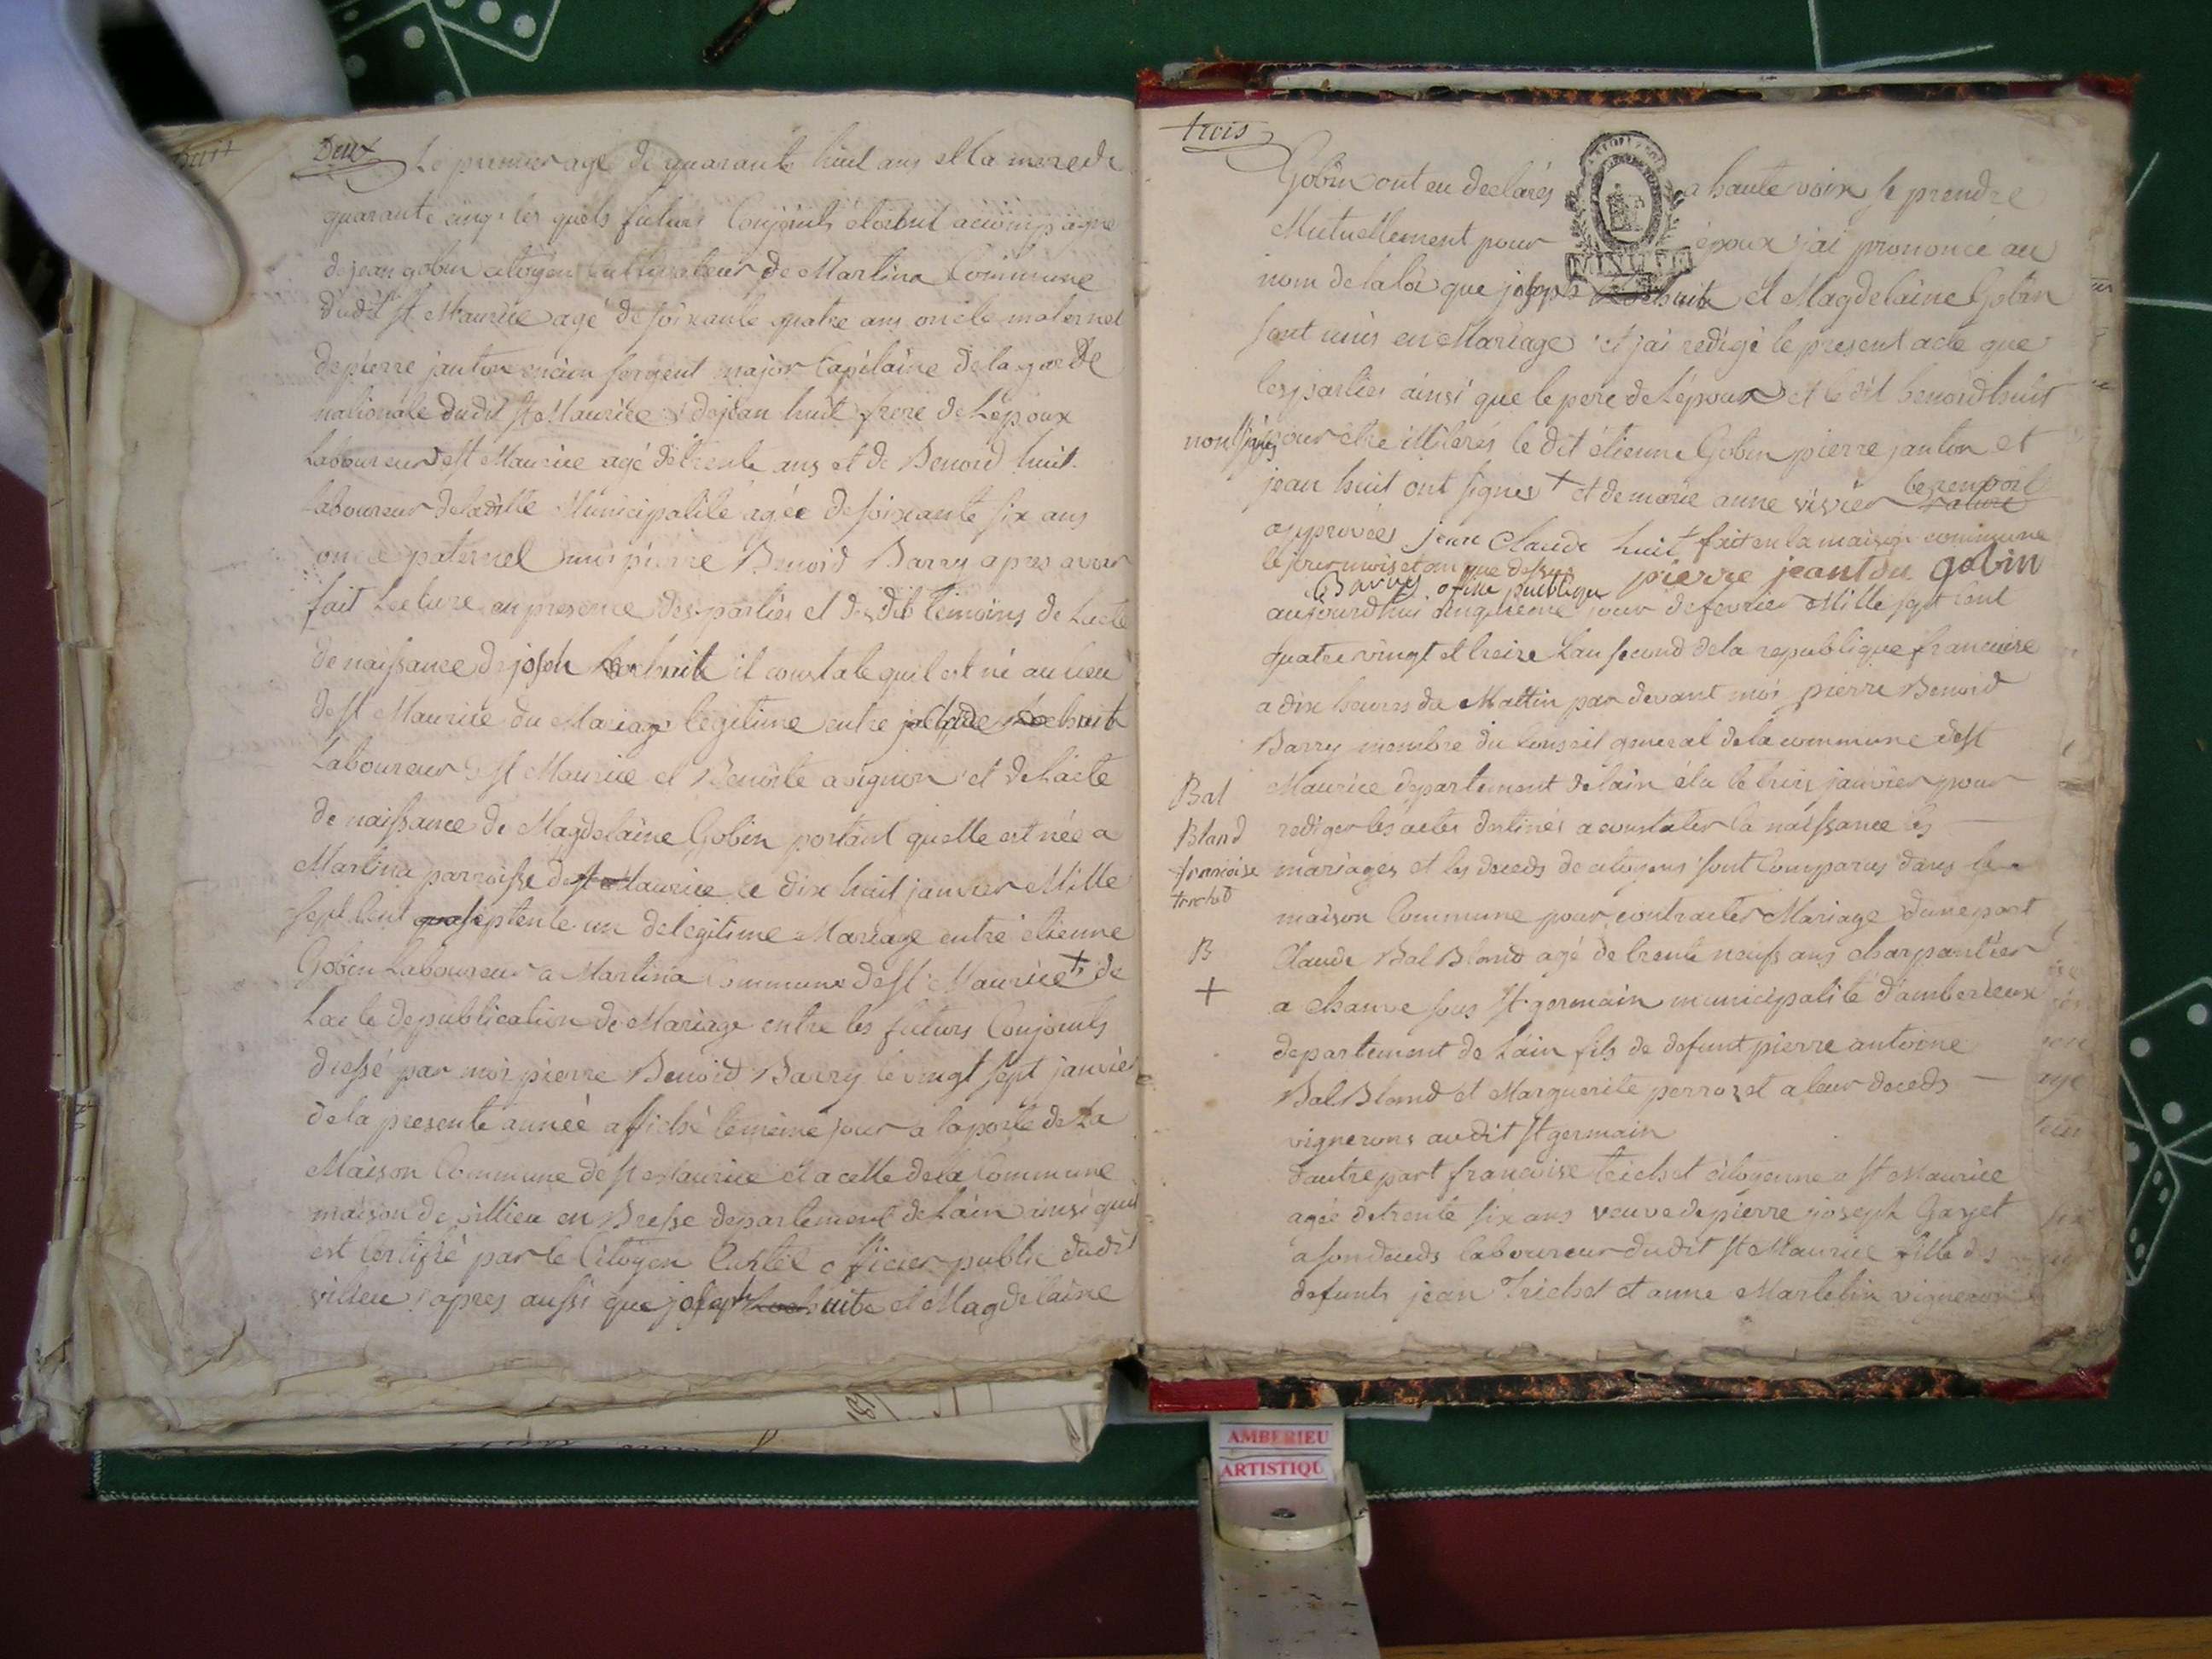 huit
Deux
Le premier agé de quarante huit ans et la mere de
quarante cinq : les quels futurs Conjoints étoient accompagné
de jean gobin citoyen Cultivateur de Martina Commune
dudit st Maurice agé de soixante quatre ans oncle maternel
de pierre janton ancien sergent major Capitaine de la garde
nationale dudit st Maurice de jean huit frere de Lépoux
Laboureur de st Maurice agé de trente ans et de Benoid huit
laboureur de la ditte Municipalité agée de soixante six ans
oncle paternel moi pierre Benoid Barry apres avoir
fait Lecture en presence des parties et des dits temoins de Lacte
de naissance de joseph huit il constate quil est né au lieu
de st Maurice du Mariage legitime entre huit
Laboureur de st Maurice et Benoite avignon et de Lacte
de naissance de Magdelaine Gobin portant quelle est née a
Martina parroisse de st Maurice le dix huit janvier Mille
sept Cent septente un de legitime Mariage entre etienne
Gobin Laboureur a Martina Commune de st Maurice + de
Lacte de publication de Mariage entre les futurs Conjoints
dressé par moi pierre Benoid Barry le vingt sept janvier
de la presente année affiché le même jour a la porte de La
Maison Commune de st Maurice et a celle de la Commune
maison de villieu en Bresse departement de Lain ainsi quil
est Certifié par le Citoyen officier public dudit
villieu apres aussi que joseph huit et Magdelaine
trois
Gobin ont eu declarés a haute voix se prendre
Mutuellement pour époux jai prononcé au
nom de la loi que joseph huit et Magdelaine Gobin
sont unis en Mariage et jai redigé le present acte que
les parties ainsi que le pere de Lépoux et le dit benoid huit
non signés pour étre illiterés le dit étienne Gobin pierre janton et
jean huit ont signés + et de marie anne vivier le renvoi
approuvés jean Claude huit + fait en la maison commune
le jour mois et an que dessus pierre jeanton gobin
Barry officie puiblique
aujourdhui cinquieme jour de fevrier Mille sept cent
quatre vingt et treize Lan second de la republique francaise
a dix heures du Mattin par devant moi pierre Benoid
Barry membre du Conseil general de la commune de st
Maurice departement de lain élu le trois janvier pour
rediger les actes destinés a constater la naissance les
mariages et les deceds de citoyens sont Comparus dans la
maison Commune pour contracter Mariage dune part
Claude Bal Bland agé de trente neuf ans charpantier
a Chauve sous st germain municipalité d'amberieux
departement de Lain fils de defunt pierre antoine
Bal Bland et Marguerite perrozet a leur deceds
vignerons audit st germain
dautre part francoise trichet citoyenne a st Maurice
agée de trente six ans veuve de pierre joseph Gazet
a son deceds laboureur dudit st Maurice fille des
defunts jean Trichet et anne Martelin vignerons
Bal
Bland
francoise
trichet
B
+
AMBERIEU
ARTISTIQU